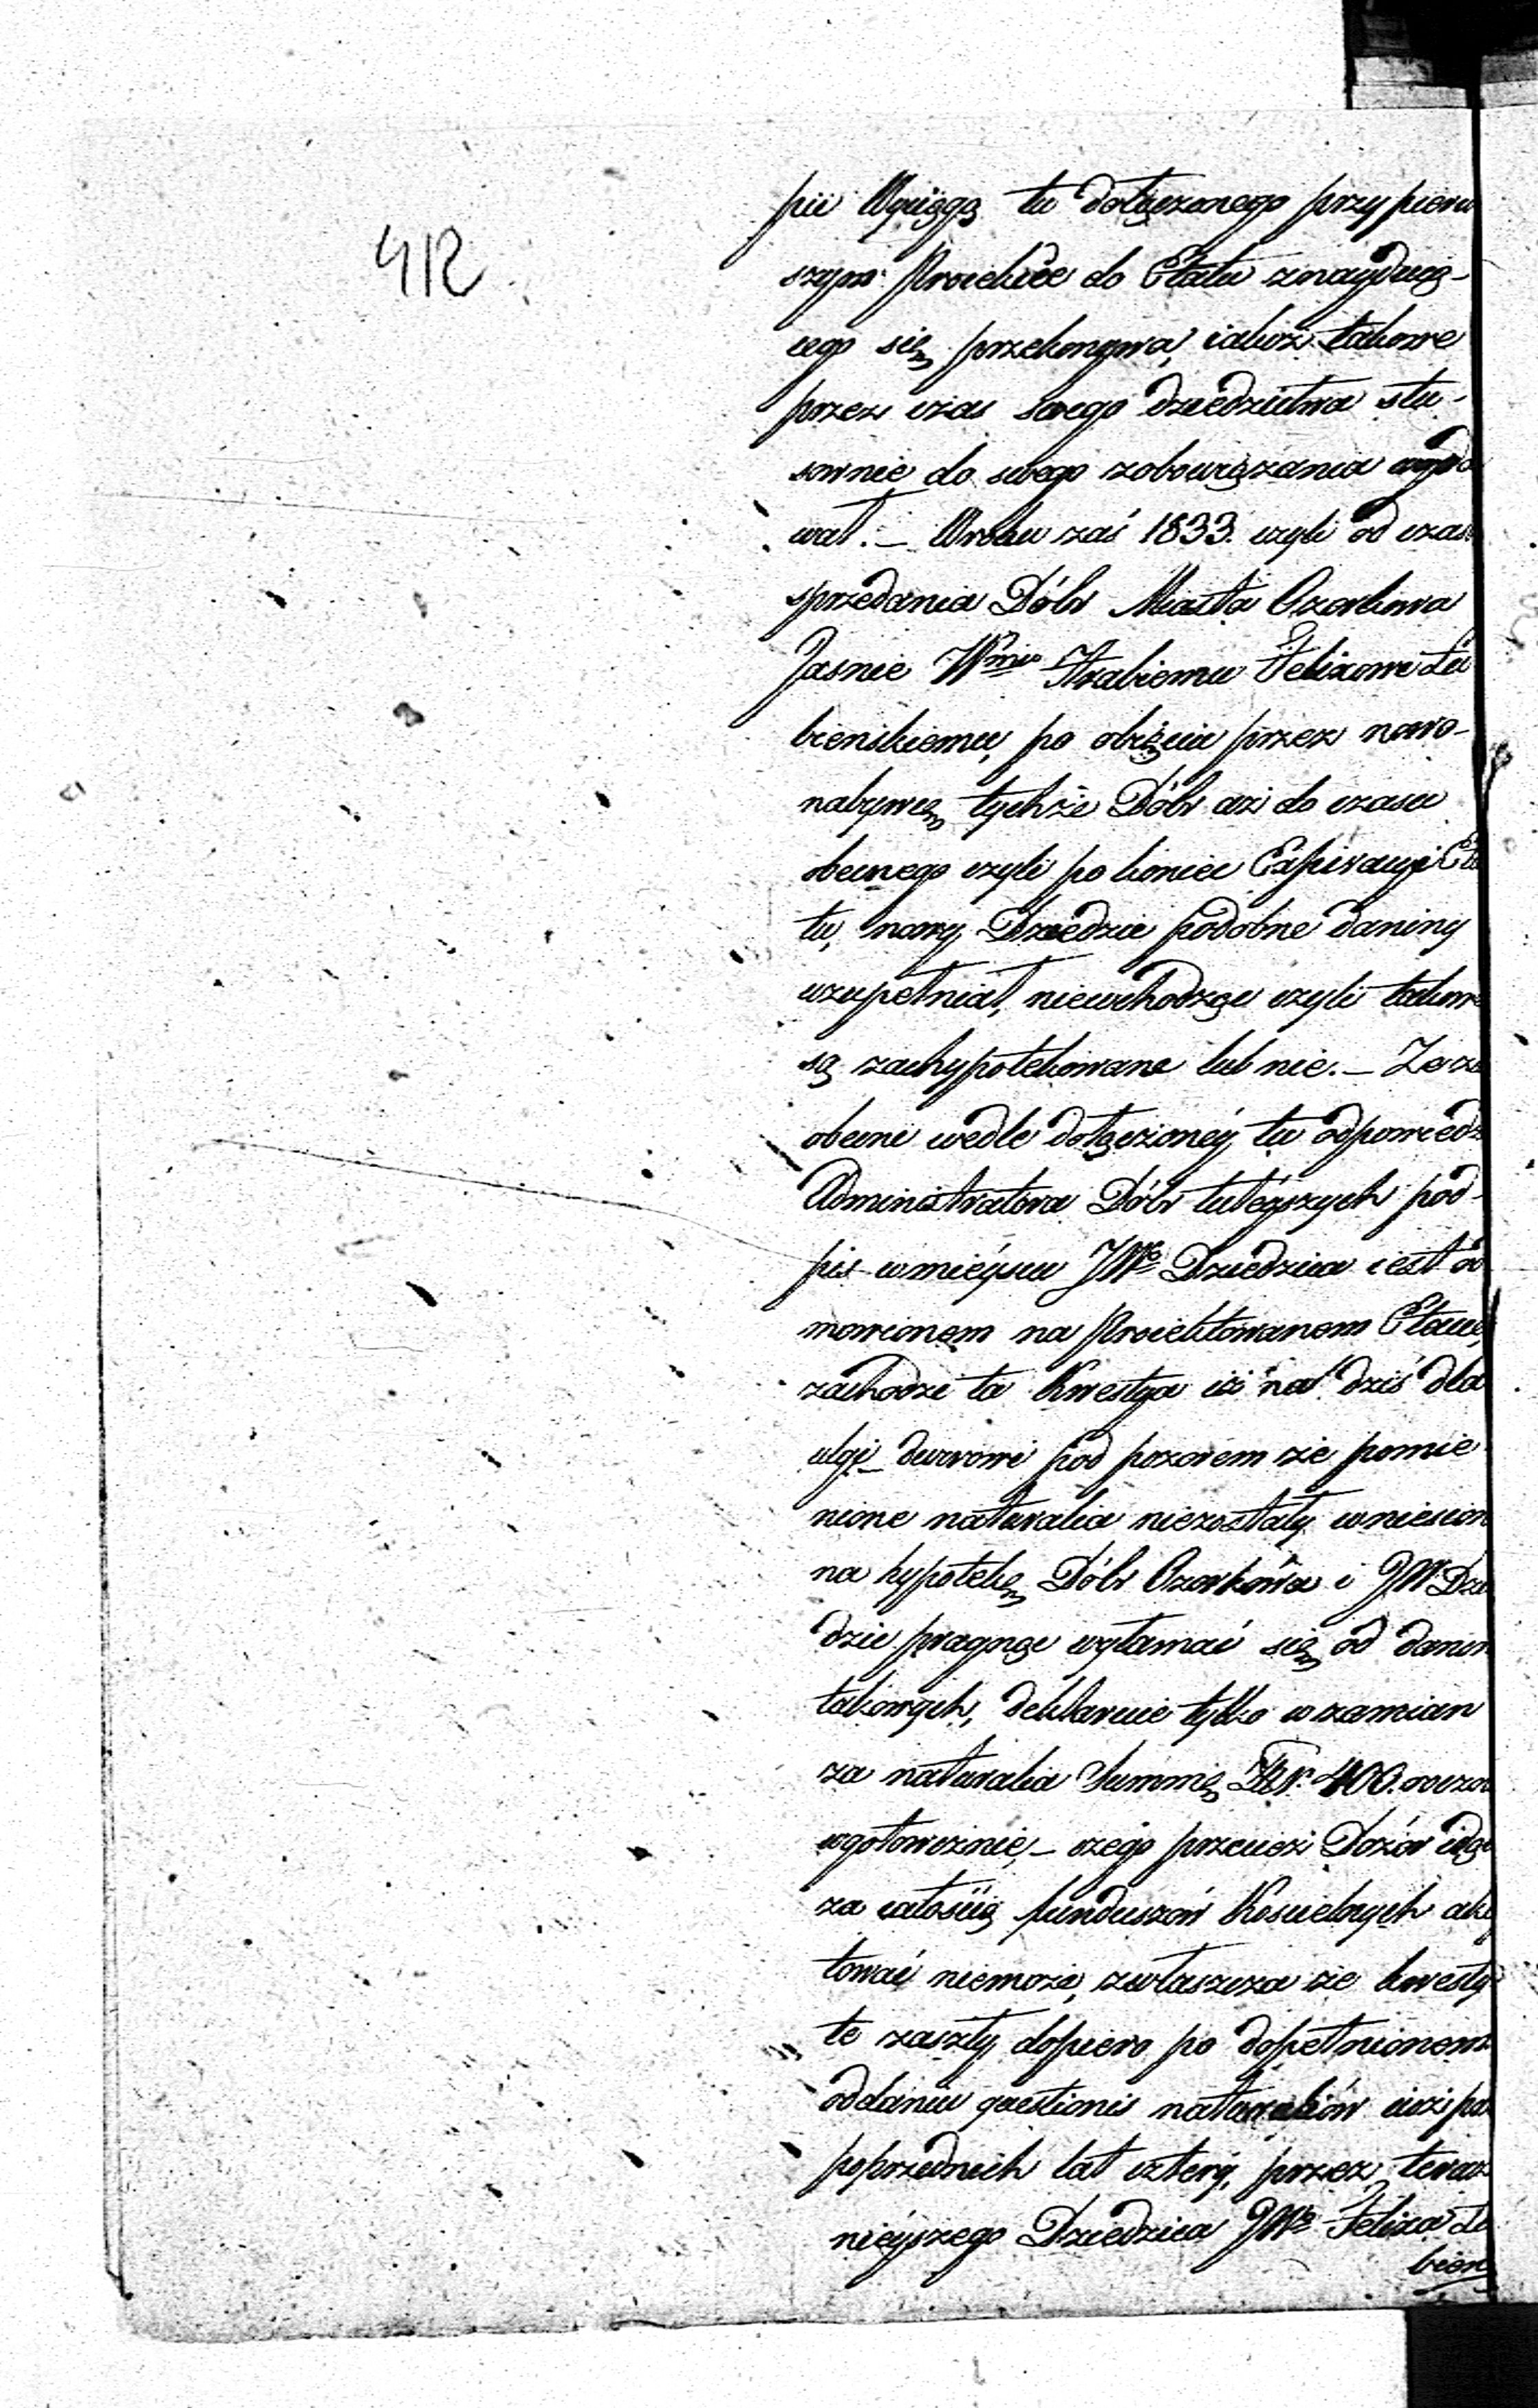 412
pii Wyciągą tu dołączonego przy pierw
szym Proiekcie do Etatu znayduią-
cego się przekonywa, iakoż takowe
przez czas swego dziedzictwa sto-
sownie do swego zobowiązania wyda
wał. – W roku zaś 1833. czyli od czasu
sprzedania Dóbr Miasta Ozorkowa
Jasnie Wmu Hrabiemu Felixowi Łu
bienskiemu, po obięciu przez nowo-
nabywcę tychże Dóbr aż do czasu
obecnego czyli po koniec Expiracyi Eta
tu, nowy Dziedzic podobne daniny
uzupełniał, niewchodząc czyli takowe
są zahypotekowane lub nie. –
obecnie wedle dołączoney tu odpowiedz
Administratora Dóbr tuteyszych pod-
pis w mieyscu JWo Dziedzica iest od
mowionem na Proiektowanem Etacie,
zachodzi ta Kwestya iż na dziś dla
ulgi dworowi pod pozorem że pomie-
nione naturalia niezostały wniesion
na hypotekę Dóbr Ozorkowa i JW Dzie
dzic pragnąc wyłamać się od danin
takowych, deklaruie tylko w zamian
za naturalia Summę Złr. 400. rocza
w gotowiznie, – czego przecież Dozór idąc
za całością funduszów Koscielnych akc
tować niemoże, zwłaszcza że kwesty
te zaszły dopiero po dopełnionem
oddaniu questionis naturaliów iuż po
poprzednich lat cztery, przez teraz
nieyszego Dziedzica JWo Felixa Łu
bien